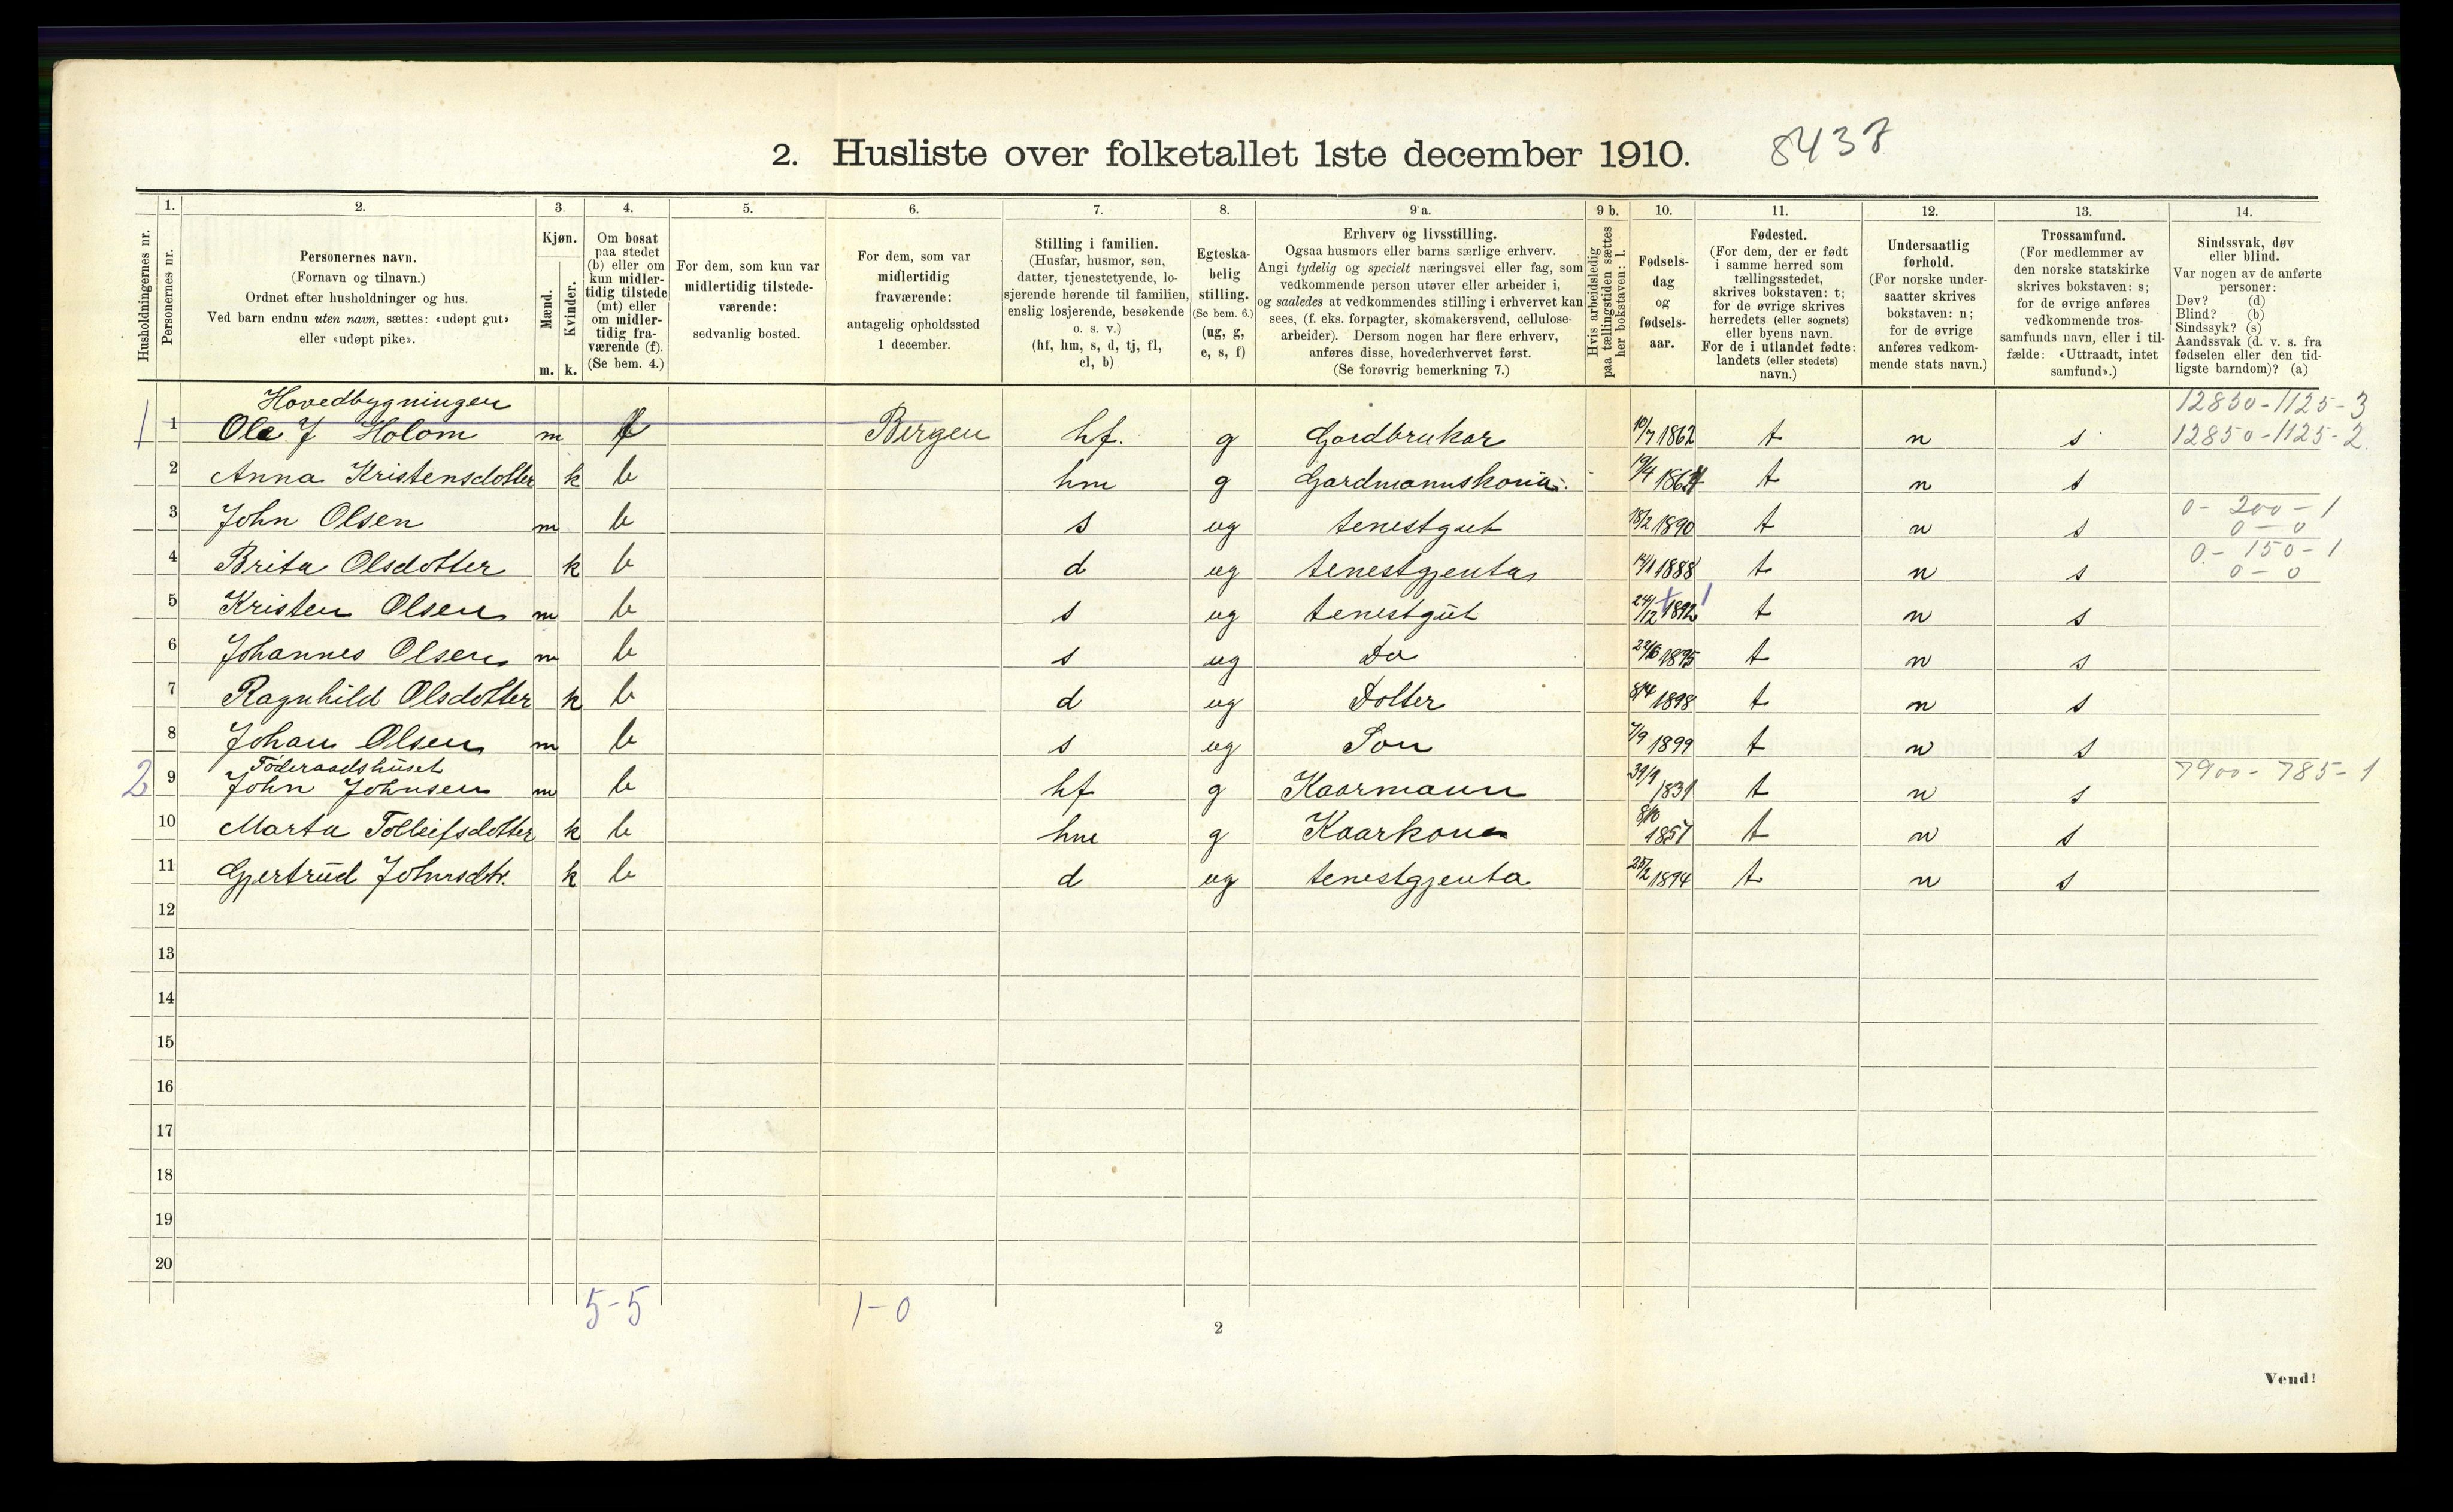 2. Husliste over folketallet 1ste december 1910. 8437
1. 2. 3. 4. 5. 6. 7. 8. 9 a. 9 b. 10. 11. 12. 13. 14.
Husholdningernes nr.
Personernes nr.
Personernes navn.
(Fornavn og tilnavn.)
Ordnet efter husholdninger og hus.
Ved barn endnu uten navn, sættes: «udøpt gut»
eller «udøpt pike».
Kjøn.
Mænd.
Kvinder.
m. k.
Om bosat
paa stedet
(b) eller om
kun midler-
tidig tilstede
(mt) eller
om midler-
tidig fra-
værende (f).
(Se bem. 4.)
For dem, som kun var
midlertidig tilstede-
værende:
sedvanlig bosted.
For dem, som var
midlertidig
fraværende:
antagelig opholdssted
1 december.
Stilling i familien.
(Husfar, husmor, søn,
datter, tjenestetyende, lo-
sjerende hørende til familien,
enslig losjerende, besøkende
o. s. v.)
(hf, hm, s, d, tj, fl,
el, b)
Egteska-
belig
stilling.
(Se bem. 6.)
(ug, g,
e, s, f)
Erhverv og livsstilling.
Ogsaa husmors eller barns særlige erhverv.
Angi tydelig og specielt næringsvei eller fag, som
vedkommende person utøver eller arbeider i,
og saaledes at vedkommendes stilling i erhvervet kan
sees, (f. eks. forpagter, skomakersvend, cellulose-
arbeider). Dersom nogen har flere erhverv,
anføres disse, hovederhvervet først.
(Se forøvrig bemerkning 7.)
Hvis arbeidsledig
paa tællingstiden sættes
her bokstaven: l.
Fødsels-
dag
og
fødsels-
aar.
Fødested.
(For dem, der er født
i samme herred som
tællingsstedet,
skrives bokstaven: t;
for de øvrige skrives
herredets (eller sognets)
eller byens navn.
For de i utlandet fødte:
landets (eller stedets)
navn.)
Undersaatlig
forhold.
(For norske under-
saatter skrives
bokstaven: n;
for de øvrige
anføres vedkom-
mende stats navn.)
Trossamfund.
(For medlemmer av
den norske statskirke
skrives bokstaven: s;
for de øvrige anføres
vedkommende tros-
samfunds navn, eller i til-
fælde: «Uttraadt, intet
samfund».)
Sindssvak, døv
eller blind.
Var nogen av de anførte
personer:
Døv? (d)
Blind? (b)
Sindssyk? (s)
Aandssvak (d. v. s. fra
fødselen eller den tid-
ligste barndom)? (a)
Hovedbygningen 12850-1125-3
1 1 Ole J Holom m f Bergen hf. g Gardbrukar 10/7 1862 t n s 12850-1125-2
2 Anna Kristensdotter k b hm g Gardmannskona 19/4 1864 t n s
0- 200-1
3 John Olsen m b s ug tenestgut 18/2 1890 t n s 0-0
0- 150-1
4 Brita Olsdotter k b d ug tenestgjenta 14/1 1888 t n s 0-0
5 Kristen Olsen m b s ug tenestgut 24/12 1892 t n s
6 Johannes Olsen m b s ug Do 1895 t n s
7 Ragnhild Olsdotter k b d ug Dotter 8/4 1898 t n s
8 Johan Olsen m b s ug Son 7/9 1899 t n s
Föderaadshuset 7900-785-1
2 9 John Johnsen m b hf g Kaarmann 1831 t n s
10 Marta Tolleifsdotter k b hm g Kaarkona 8/10 1851 t n s
11 Gjertrud Johnsdtr. k b d ug tenestgjenta 25/2 1894 t n s
12
13
14
15
16
17
18
19
20
5-5 1-0
2
Vend!